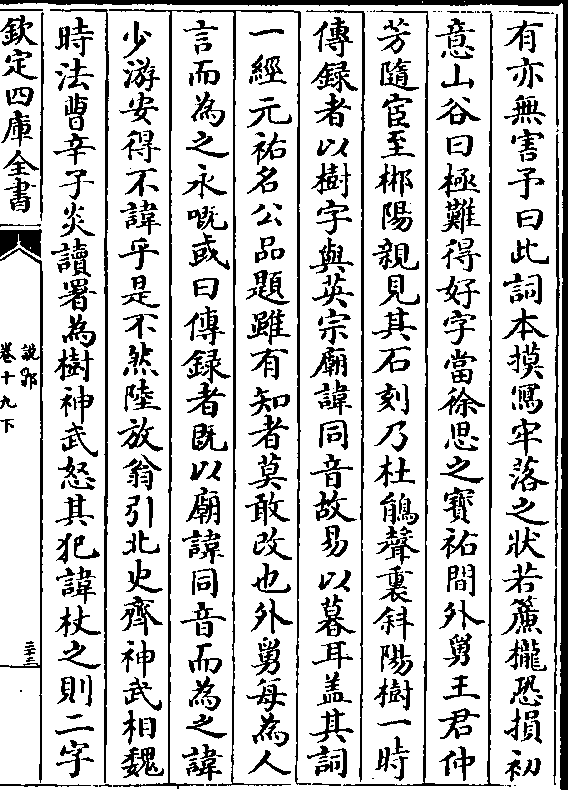 有亦無害予曰此詞本摸寫牢落之狀若簾櫳恐損初
意山谷曰極難得好字當徐思之寶祐間外舅王君仲
芳隨宦至郴陽親見其石刻乃杜鵑聲裏斜陽樹一時
傳録者以樹字與英宗廟諱同音故易以暮耳盖其詞
一經元祐名公品題雖有知者莫敢改也外舅每為人
言而為之永嘅或曰傳録者既以廟諱同音而為之諱
少游安得不諱乎是不然陸放翁引北史齊神武相魏
時法曹辛子炎讀署為樹神武怒其犯諱杖之則二字
欽定四庫全書
說郛
卷十九下
三十三